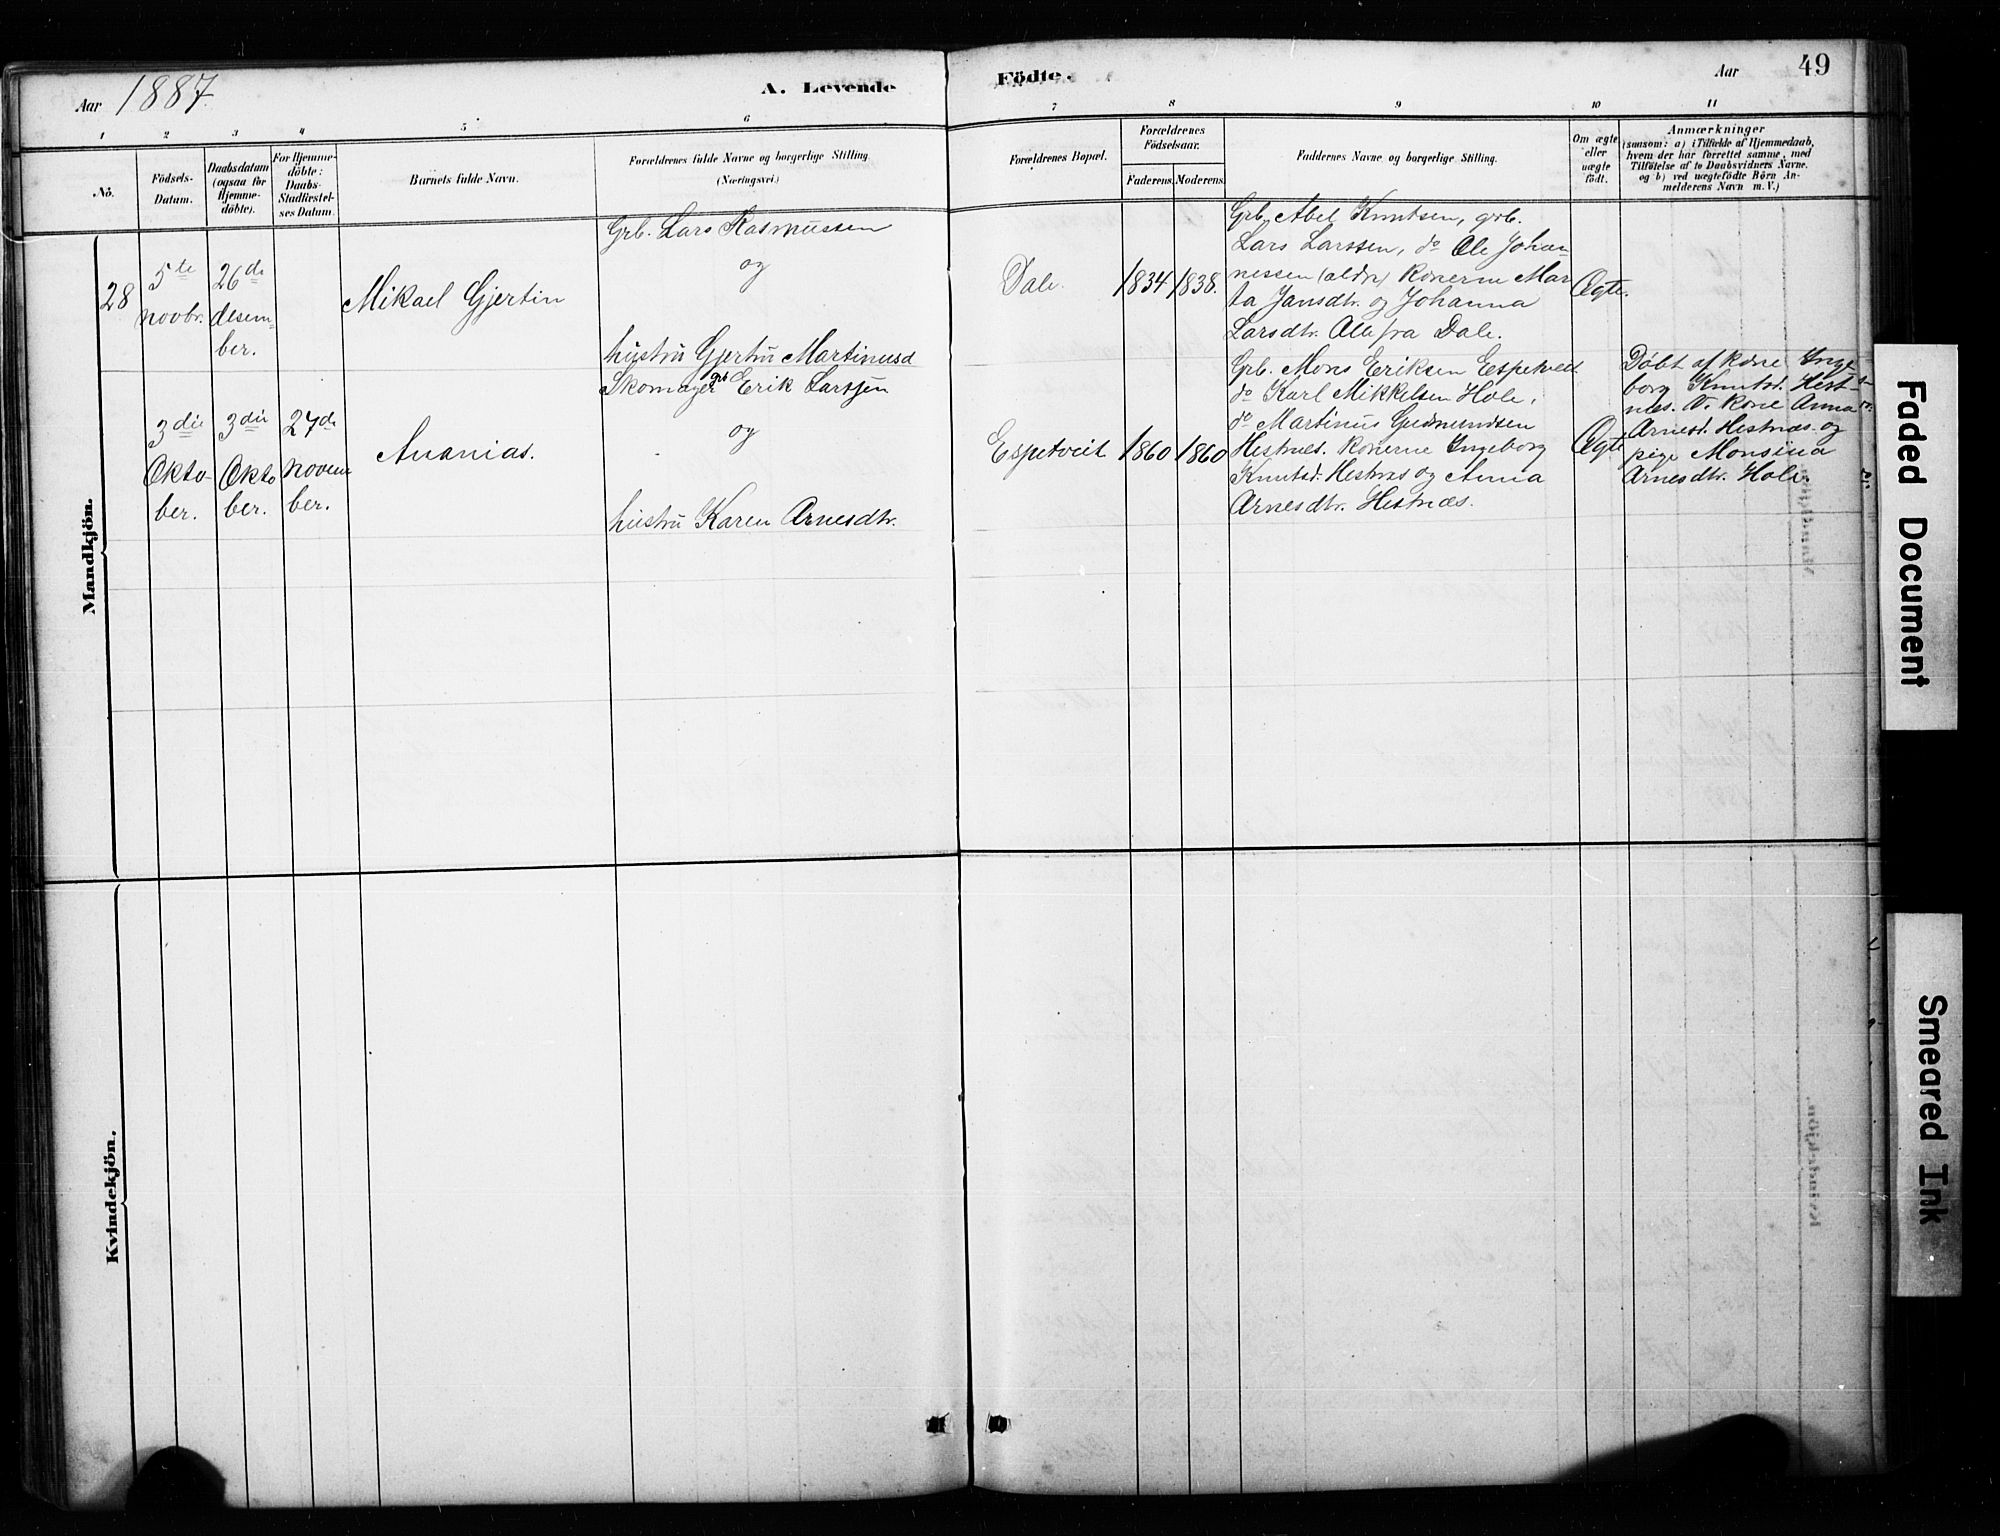 Aar 1887.
A. Levende
Födte.
Aar
49
1 2 3 4 5 6 7 8 9 10 11
No.
Födsels-
Datum.
Daabsdatum
(ogsaa for
Hjemme-
döbte).
For Hjemme-
döbte:
Daabs-
Stadfæstel-
ses Datum.
Barnets fulde Navn.
Forældrenes fulde Navne og borgerlige Stilling.
(Næringsvei.)
Forældrenes Bopæl.
Forældrenes
Födselsaar.
Faderens.
Moderens.
Faddernes Navne og borgerlige Stilling.
Om ægte
eller
uægte
födt.
Anmærkninger
(saasom: a) i Tilfælde af Hjemmedaab,
hvem der har forrettet samme, med
Tilföielse af to Daabsvidners Navne.
og b) ved uægtefödte Börn An-
melderens Navn m. V.)
Mandkjön.
28
5te
novbr.
26de
desem-
ber.
Mikael Gjertin
Grb. Lars Rasmussen
og
hustru Gjertru Martinusd
Dale.
1834
1838.
Grb. Abel Knutsen, grb.
Lars Larssen, do Ole Johan-
nessen (aldr) Konerne Mar
ta Jansdtr. og Johanna
Larsdtr. Alle fra Dale.
Ægte.
3die
Okto-
ber.
3die
Okto
ber.
27de
novem
ber.
Ananias.
Skomager grb Erik Larssen
og
hustru Karen Arnesdtr.
Espetveit
1860
1860
Grb. Mons Eriksen Espetveit
do Karl Mikkelsen Hole,
do Martinus Gudmundsen
Hestnæs. Konerne Ingeborg
Knutsd. Hestnæs og Anna
Arnesdtr. Hestnæs.
Ægte
Döbt af kone Inge
borg Knutsd. Hest-
næs. V. kone Anna
Arnesd. Hestnæs og
pige Monsina
Arnesdtr. Hole.
Kvindekjön.
Faded Document
Smeared Ink